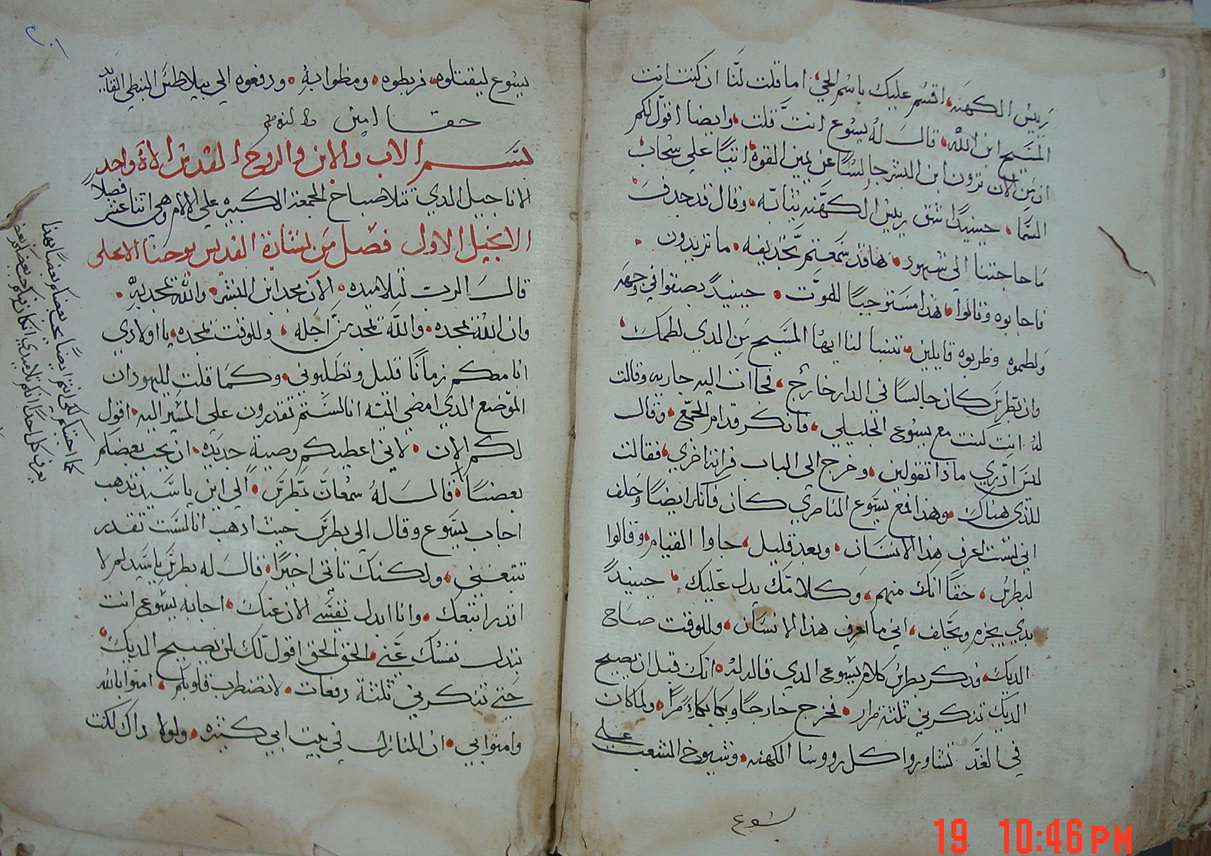 رييس الكهنه اقسم عليك باسم الحي اما قلت لنا ان كنت انت
المسيح ابن الله قال له يسوع انت قلت وايضا اقول لكم
ان من الان ترون ابن البشر جالسًا عن يمين القوه اتيًا علي سحاب
السما حينيدًا شق رييس الكهنه ثيابه وقال قد جدف
ما حاجتنا الي شهود هاقد سمعتم تجديفه ما تريدون
فاجابوه وقالوا هدا مستوجبًا للموت حينيدً بصقوا في وجهه
ولطموه وظربوه قايلين تنبا لنا ايها المسيح من الدي لطمك
وان بطرس كان جالسًا في الدار خارج فجات اليه جاريه وقالت
له انت كنت مع يسوع الجليلي فانكر قدام الجمع وقال
لست ادري مادا تقولين وخرج الي الباب فراته اخري فقالت
للذي هناك وهدا مع يسوع الناصري كان فانكر ايضًا وحلف
اني لست اعرف هدا الانسان وبعد قليل جاوا القيام وقالوا
لبطرس حقًا انك منهم وكلامك يدل عليك حينيدً
بدي يحرم ويحلف اني ما اعرف هدا الانسان وللوقت صاح
الديك فدكر بطرس كلام يسوع الدي قال له انك قبل ان يصيح
الديك تنكرني تلتة مرار فخرج خارجًا وبكا بكاءً مرًا ولما كان
في الغد تشاوروا كل رووسا الكهنه وشيوخ الشعب علي
يسوع
يسوع ليقتلوه فربطوه ومظوا به ودفعوه الي بيلاطس البنطي القايد
حقا امين
بسم الاب والابن والروح القدس الاه واحد
الاناجيل الدي تتلا صباح الجمعة الكبيره علي الالام وهي اتناعشر فصلاً
الانجيل الاول فصل من بشارة القديس يوحنا الاعلي
قال الرب لتلاميده الان مجد ابن البشر والله تمجد به
وان الله مجده والله تمجد من اجله وللوقت تمجده يا اولادي
انا معكم زمانًا قليل وتطلبوني وكما قلت لليهود ان
الموضع الدي امضي اليه انا لستم تقدرون علي المسير اليه اقول
لكم الان لاني اعطيكم وصية جديده ان يحب بعضكم
بعضًا قال له سمعان بطرس الي اين يا سيد تدهب
اجاب يسوع وقال الي بطرس حيت ادهب انا لست تقدر
تتبعني ولكنك تاتي اخيرًا قال له بطرس يا سيد لم لا
اقدر اتبعك وانا ابدل نفسي الان عنك اجابه يسوع انت
تبدل نفسك عني الحق الحق اقول لك لن يصيح الديك
حتي تنكرني تلتة دفعات لا تضطرب قلوبكم امنوا بالله
وامنوا بي ان المنازل في بيت ابي كتيره ولولا داك لكنت
كما احببتكم لكي انتم ايضًا يحب بعضكم بعضًا بهدا
يعرف كل احد انكم تلاميدي
19 10:46PM